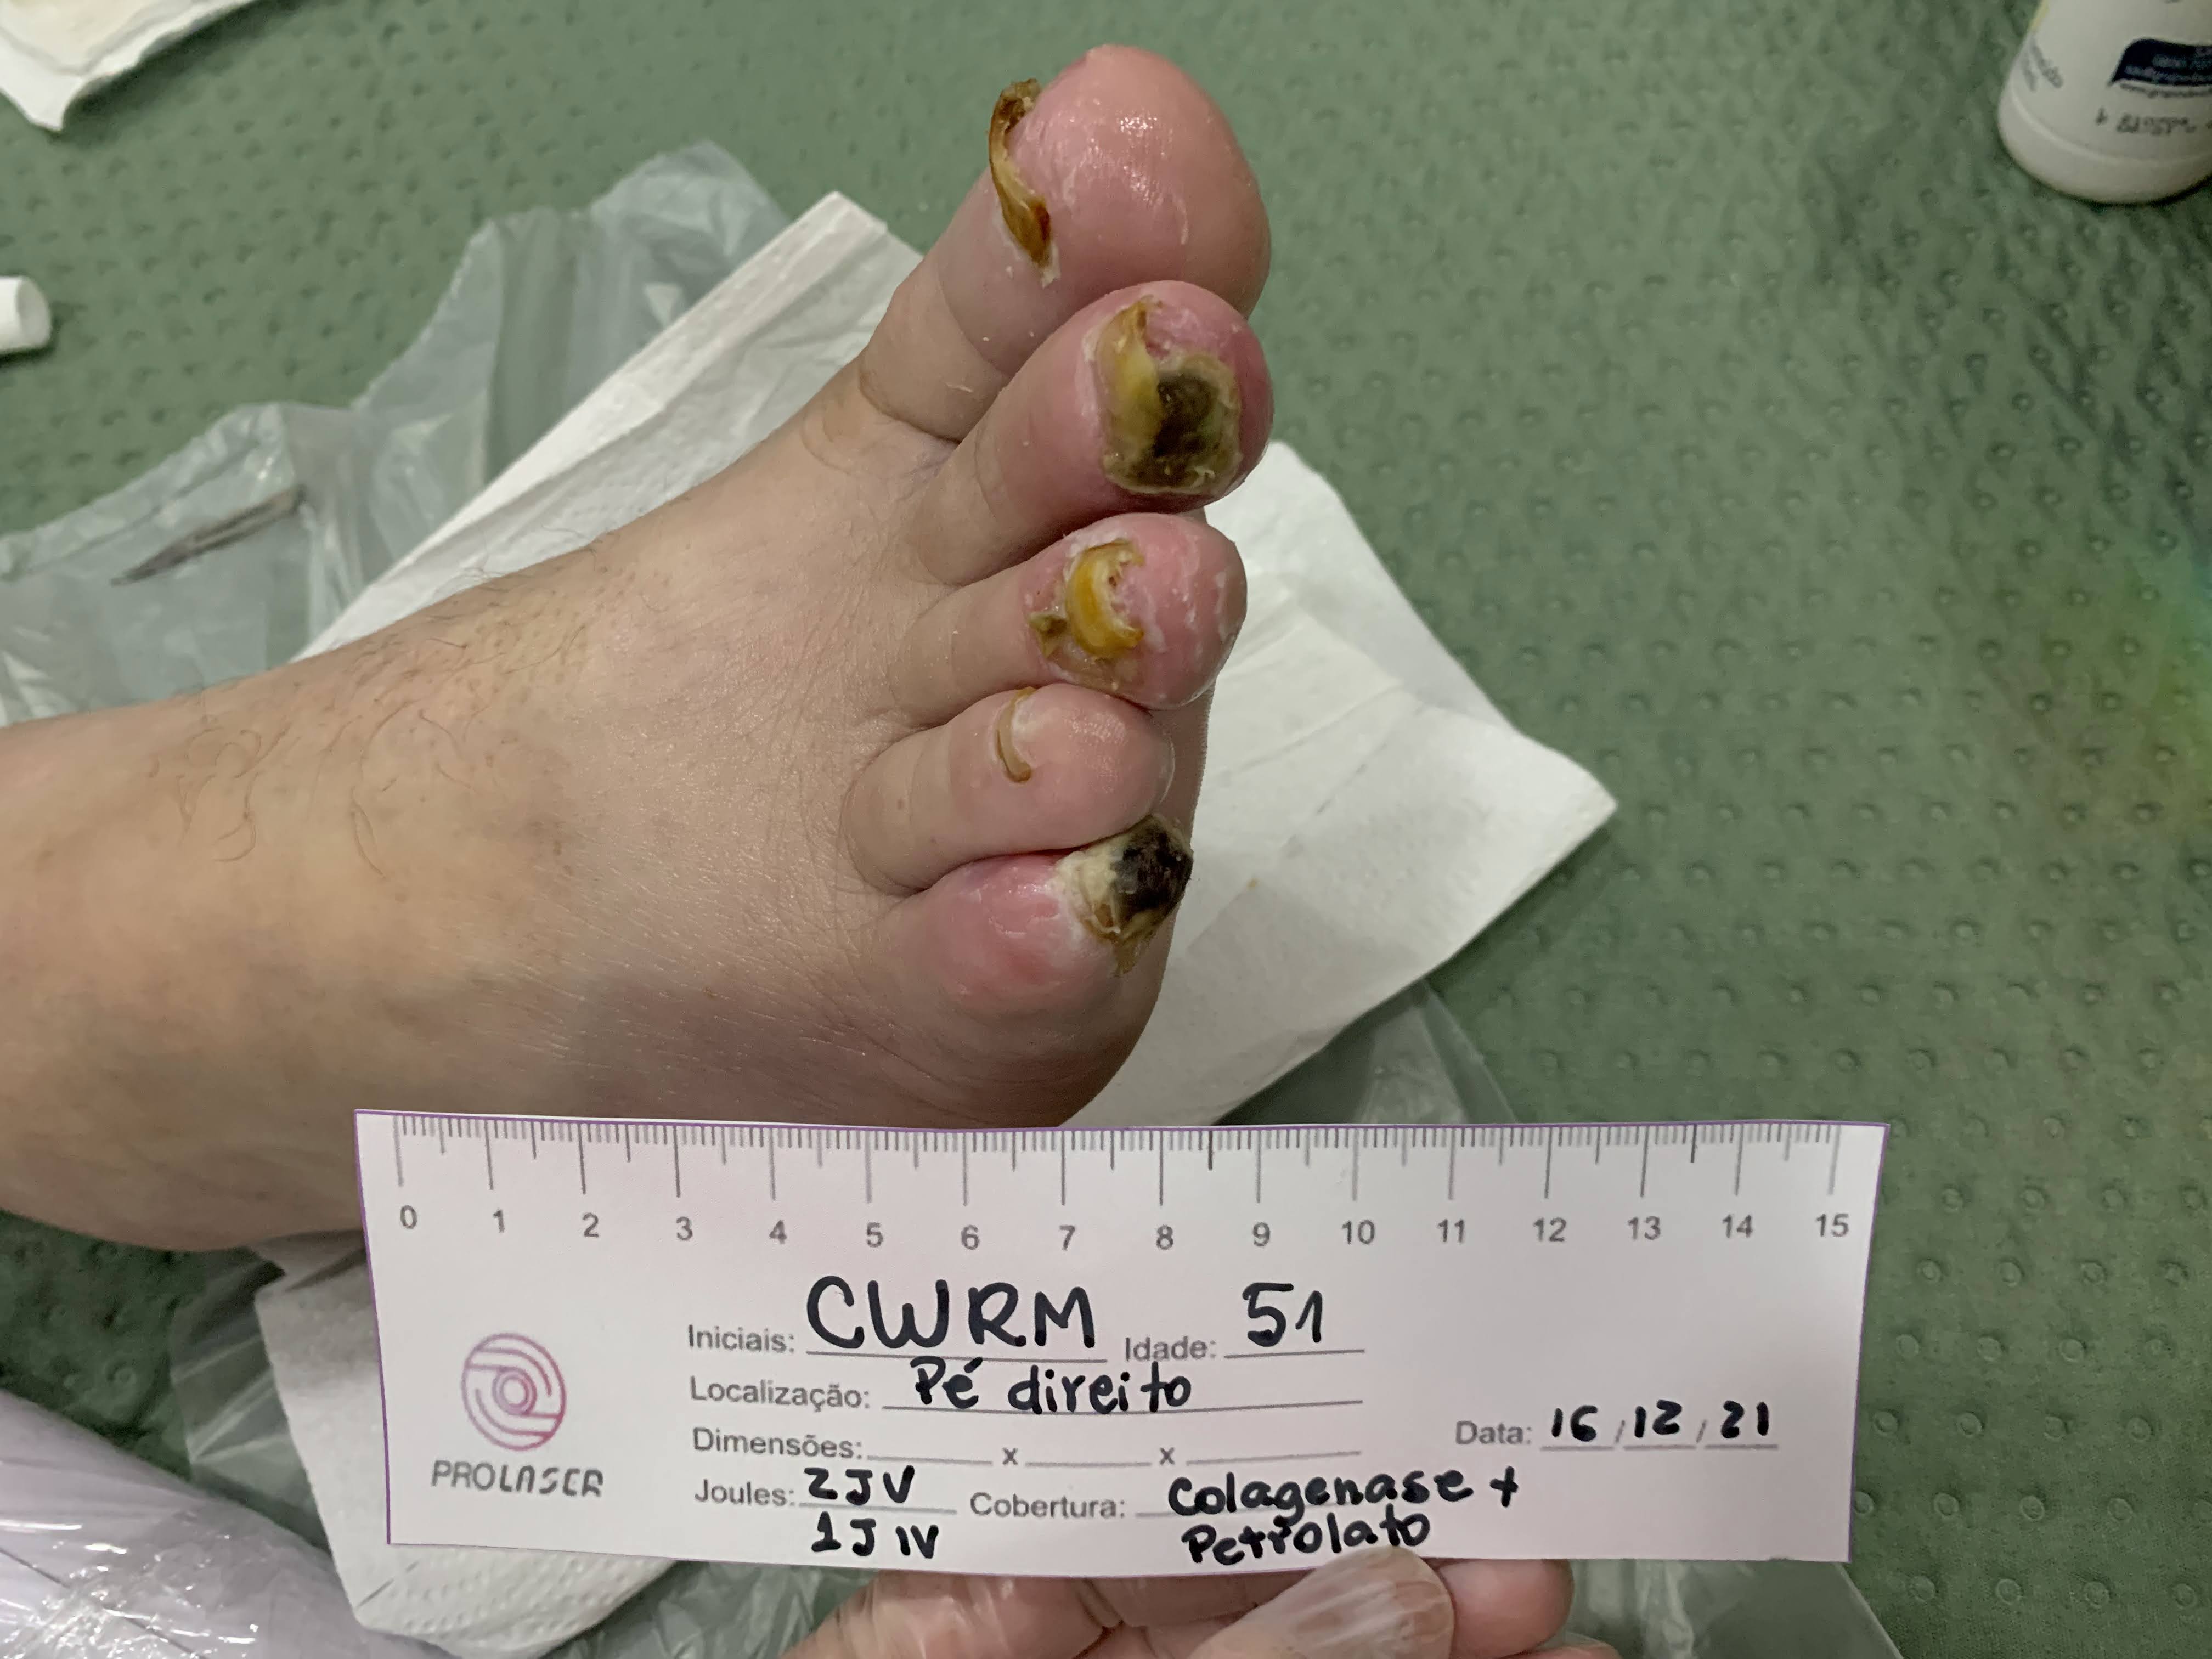 0 1 2 3 4 5 6 7 8 9 10 11 12 13 14 15
PROLASER
Iniciais: CWRM Idade: 51
Localização: Pé direito
Dimensões: x x Data: 16/12/21
Joules: 2J V Cobertura: Colagenase +
1J IV Petrolato